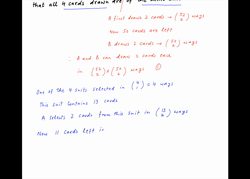 that all 4 cards drawn are of the same
A first draws 2 cards → (52 2) ways
Now 50 cards are left
B draws 2 cards → (50 2) ways
∴ A and B can draw 2 cards each
in (52 2) × (50 2) ways ①
One of the 4 suits selected in (4 1) = 4 ways
This suit contains 13 cards
A selects 2 cards from this suit in (13 2) ways
Now 11 cards left in